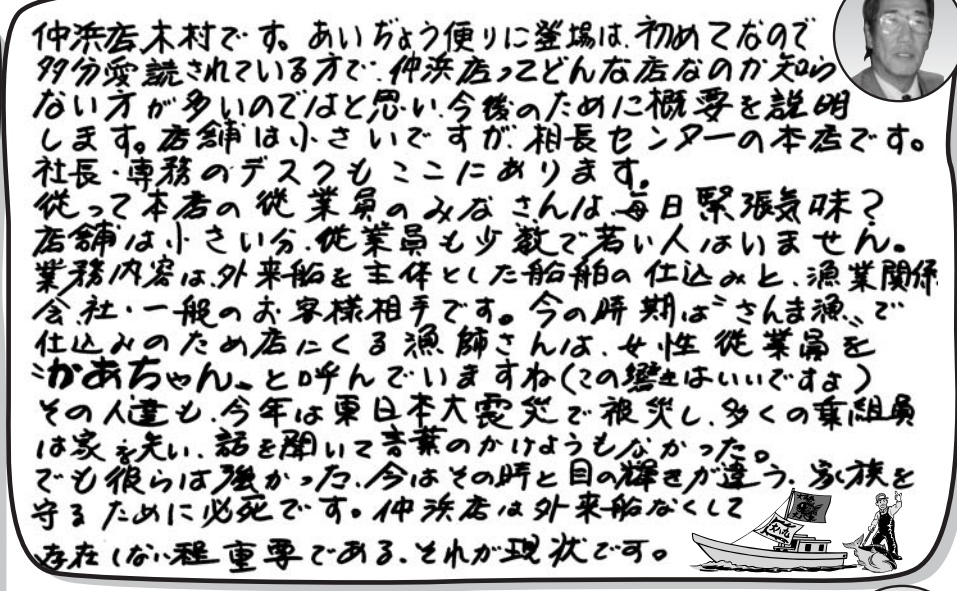 仲浜店木村です。あいぢょう便りに登場は、初めてなので
多分愛読されている方で、仲浜店ってどんな店なのか知ら
ない方が多いのではと思い、今後のために概要を説明
します。店舗は小さいですが、相長センターの本店です。
社長・専務のデスクもここにあります。
従って本店の従業員のみなさんは、毎日緊張気味？
店舗は小さい分、従業員も少数で若い人はいません。
業務内容は、外来船を主体とした船舶の仕込みと、漁業関係
会社・一般のお客様相手です。今の時期は〝さんま漁〟で
仕込みのため店にくる漁師さんは、女性従業員を
〝かあちゃん〟と呼んでいますね(この響きはいいですよ)
その人達も、今年は東日本大震災で被災し、多くの乗組員
は家を失い、話を聞いて言葉のかけようもなかった。
でも彼らは強かった、今はその時と目の輝きが違う、家族を
守るために必死です。仲浜店は外来船なくして
存在しない程重要である、それが現状です。